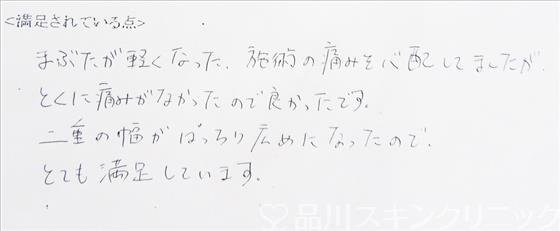 <満足されている点>
まぶたが軽くなった。施術の痛みを心配してましたが、
とくに痛みがなかったので良かったです。
二重の幅がぱっちり広めになったので、
とても満足しています。
品川スキンクリニック